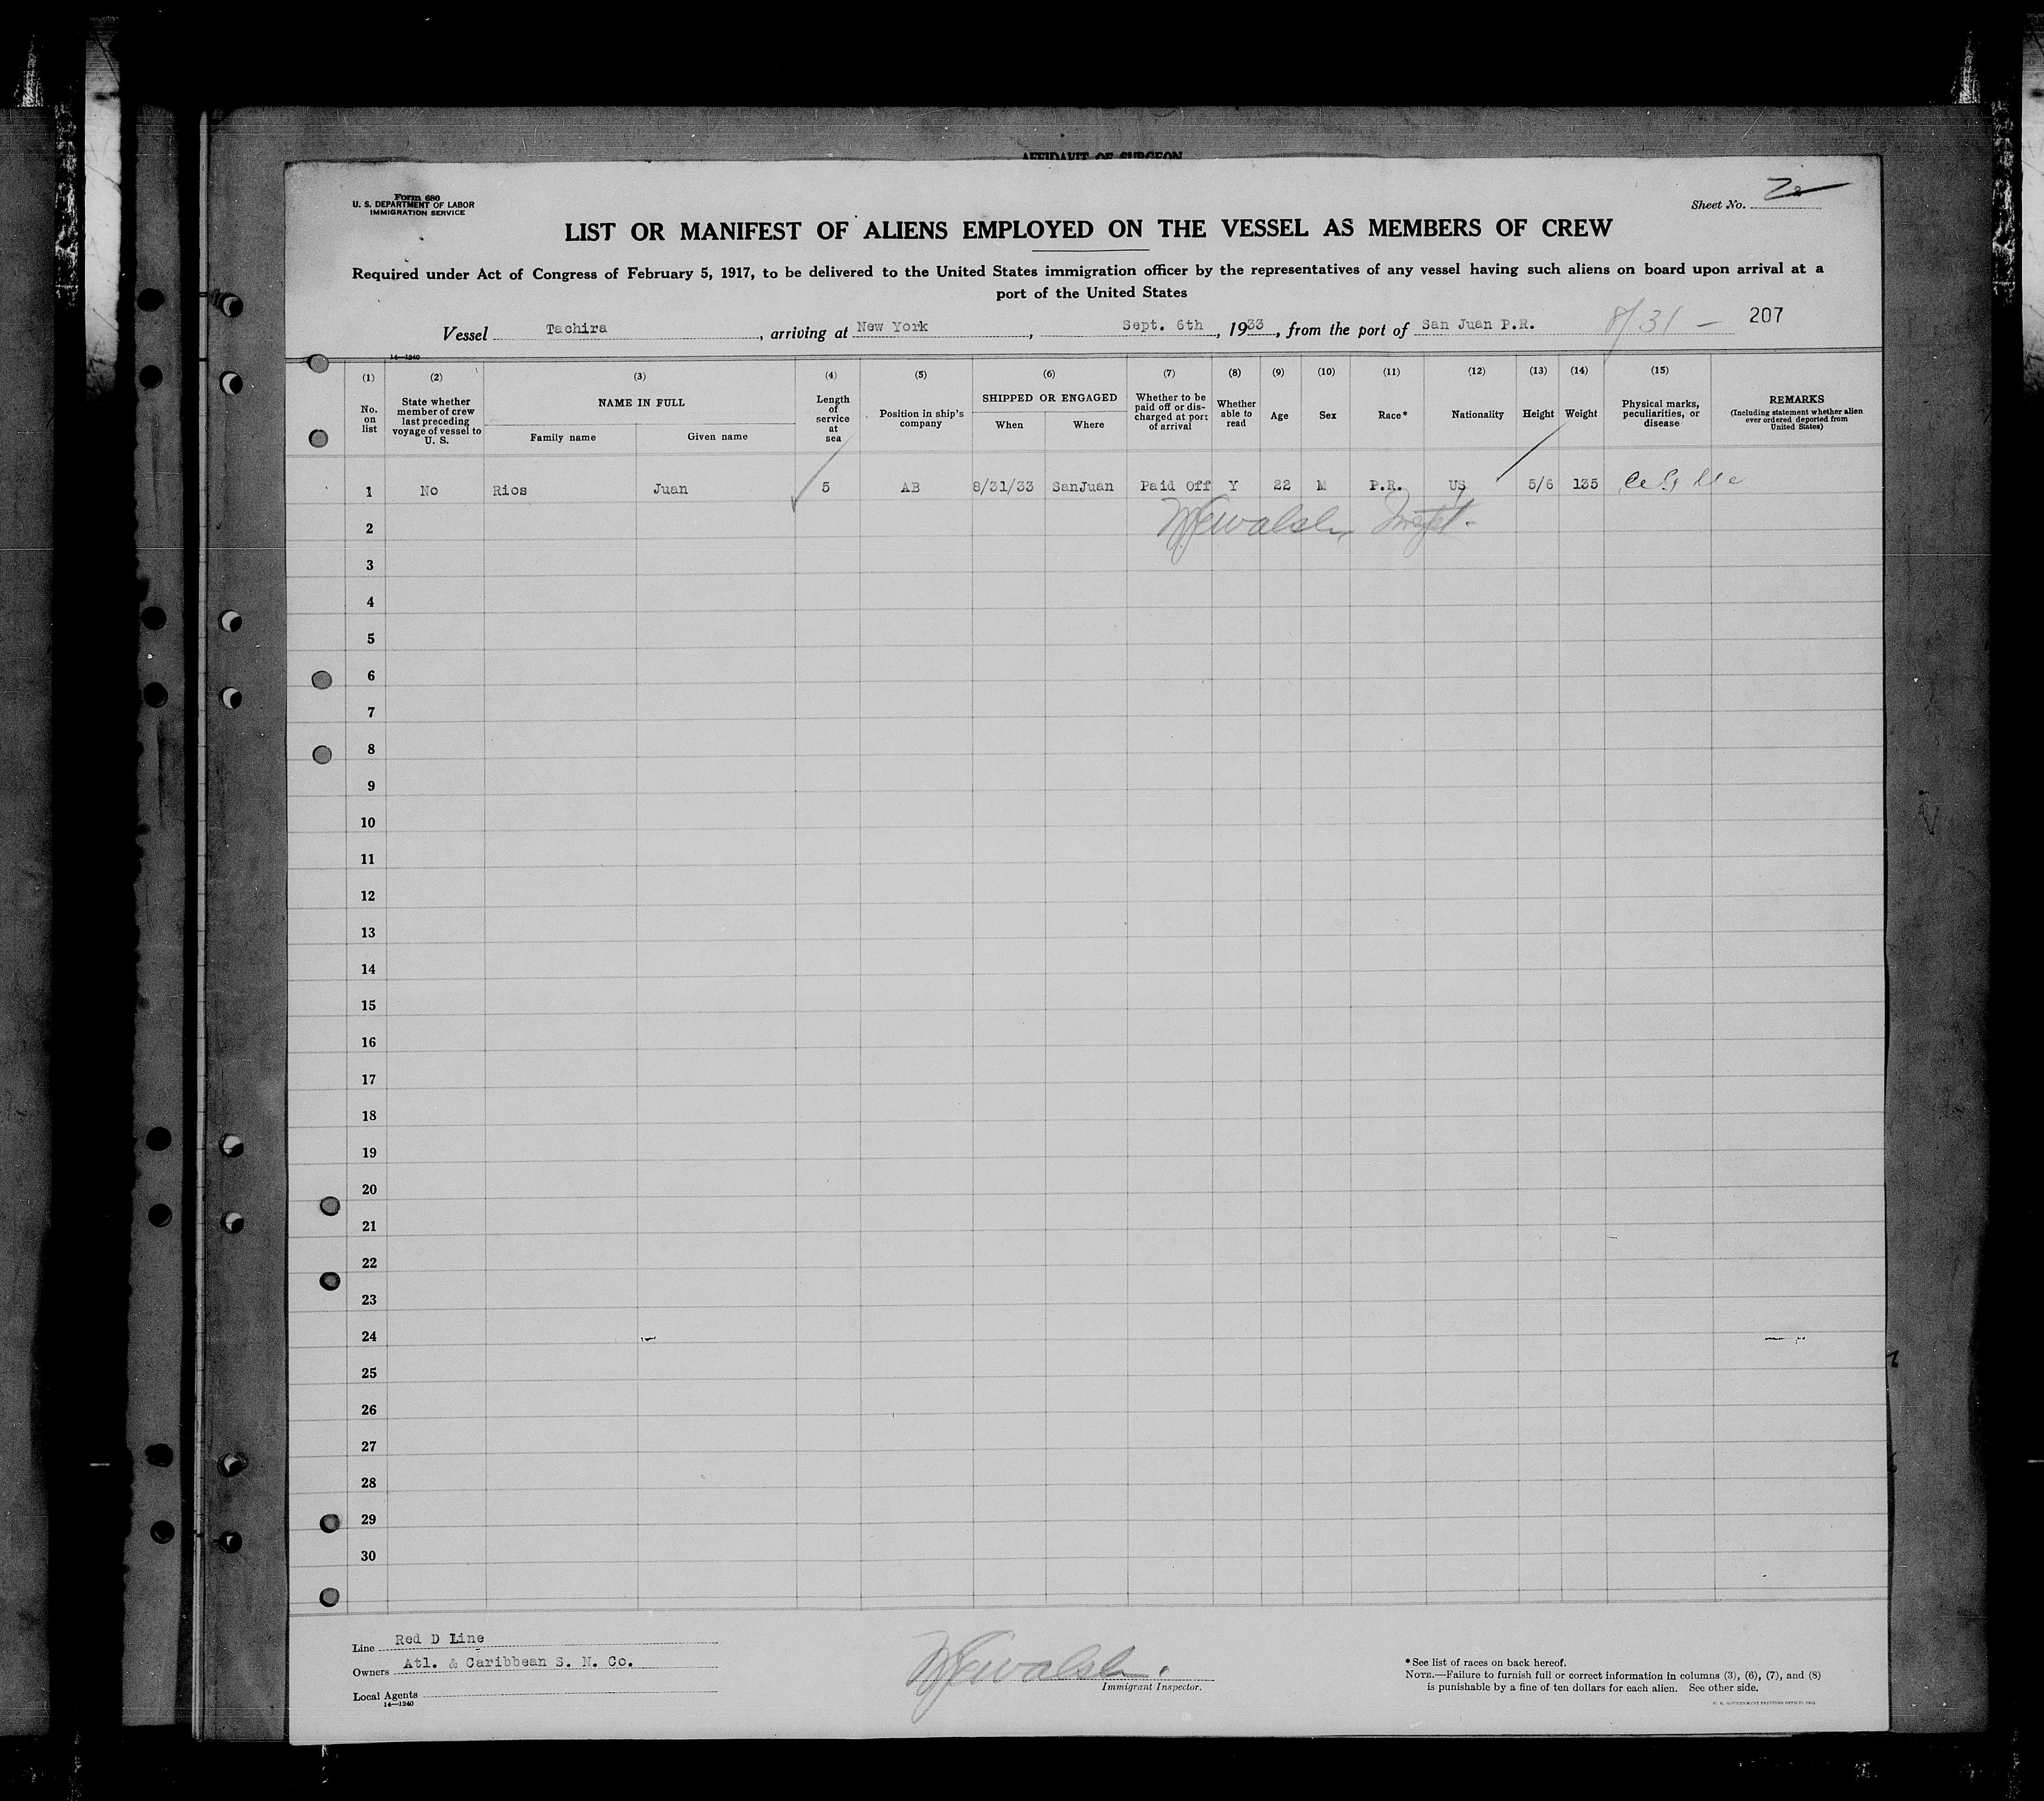 AFFIDAVIT OF SURGEON
Form 680
U. S. DEPARTMENT OF LABOR
IMMIGRATION SERVICE
Sheet No.
LIST OR MANIFEST OF ALIENS EMPLOYED ON THE VESSEL AS MEMBERS OF CREW
Required under Act of Congress of February 5, 1917, to be delivered to the United States immigration officer by the representatives of any vessel having such aliens on board upon arrival at a
port of the United States
Vessel Tachira, arriving at New York, Sept. 6th, 1933, from the port of San Juan P.R. 8/31 — 207
14—1240
(1) (2) (3) (4) (5) (6) (7) (8) (9) (10) (11) (12) (13) (14) (15)
No. on list
State whether member of crew last preceding voyage of vessel to U. S.
NAME IN FULL
Family name Given name
Length of service at sea
Position in ship's company
SHIPPED OR ENGAGED
When Where
Whether to be paid off or discharged at port of arrival
Whether able to read
Age
Sex
Race*
Nationality
Height
Weight
Physical marks, peculiarities, or disease
REMARKS
(Including statement whether alien ever ordered deported from United States)
1 No Rios Juan 5 AB 8/31/33 SanJuan Paid Off Y 22 M P.R. US 5/6 135
2 Walsh, Inspt.
3
4
5
6
7
8
9
10
11
12
13
14
15
16
17
18
19
20
21
22
23
24
25
26
27
28
29
30
Line Red D Line
Owners Atl. & Caribbean S. N. Co.
Local Agents
14—1240
Walsh.
Immigrant Inspector.
*See list of races on back hereof.
NOTE.—Failure to furnish full or correct information in columns (3), (6), (7), and (8)
is punishable by a fine of ten dollars for each alien. See other side.